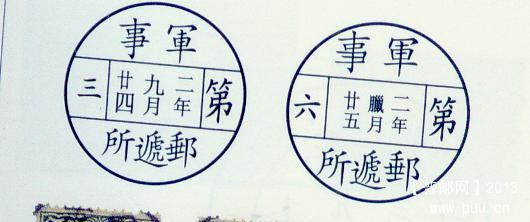 軍事
第
二年
九月
廿四
三
郵遞所
軍事
第
二年
臘月
廿五
六
郵遞所
邮网】2013
www.puu.cn